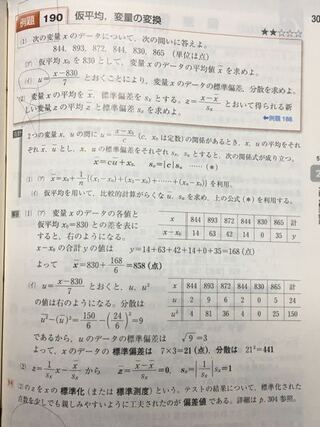 例題 190 仮平均,変量の変換
★★☆☆☆
(1) 次の変量 x のデータについて,次の問いに答えよ。
844, 893, 872, 844, 830, 865 (単位は点)
(ア) 仮平均 x₀ を 830 として,変量 x のデータの平均値 x̄ を求めよ。
(イ) u=(x−830)/7 とおくことにより,変量 x のデータの標準偏差,分散を求めよ。
(2) 変量 x の平均を x̄,標準偏差を sₓ とする。z=(x−x̄)/sₓ とおいて得られる新
しい変量 z の平均 z̄ と標準偏差 s_z を求めよ。
例題 188
2つの変量 x, u の間に u=(x−x₀)/c (c, x₀ は定数)の関係があるとき,x, u の平均をそ
れぞれ x̄, ū とし,x, u の標準偏差をそれぞれ sₓ, sᵤ とすると,次の関係式が成り立つ。
x̄=cū+x₀, sₓ=|c|sᵤ ……(*)
(1) (ア) x̄=x₀+(1/n){(x₁−x₀)+(x₂−x₀)+……+(xₙ−x₀)} を利用。
(イ) 仮平均を用いて,比較的計算がらくな ū, sᵤ を求め,上の公式 (*) を利用する。
解答 (1) (ア) 変量 x のデータの各値と
仮平均 x₀=830 との差を表に
すると,右のようになる。
x 844 893 872 844 830 865 計
x−x₀ 14 63 42 14 0 35 y
x−x₀ の合計 y の値は y=14+63+42+14+0+35=168(点)
よって x̄=830+168/6=858(点)
(イ) u=(x−830)/7 とおくと,u, u²
の値は右のようになる。分散は
x 844 893 872 844 830 865 計
u 2 9 6 2 0 5 24
u² 4 81 36 4 0 25 150
u²−(ū)²=150/6−(24/6)²=9
であるから,u のデータの標準偏差は √9=3
よって,x のデータの 標準偏差は 7×3=21(点),分散は 21²=441
(2) z=(1/sₓ)x−x̄/sₓ から z̄=x̄/sₓ−x̄/sₓ=0, s_z=|1/sₓ|sₓ=1
(2) の z を x の 標準化(または 標準測度)という。テストの結果について,標準化された
点数を少しでも親しみやすいように工夫されたのが 偏差値 である。詳細は p. 304 参照。